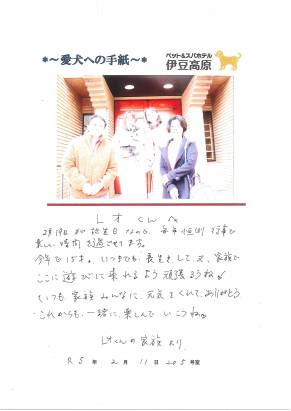 *~愛犬への手紙~*
ペット&スパホテル
伊豆高原
レオくんへ
2月19日が誕生日なので、毎年恒例行事で
楽しい時間を過させてます。
今年で15才。いつまでも、長生きをして、又、家族で
ここに遊びに来れるよう頑張ろうね。
いつも家族みんなに、元気をくれて、ありがとう
これからも、一緒に、楽しんでいこうね。
レオくんの家族より
R5年2月11日205号室